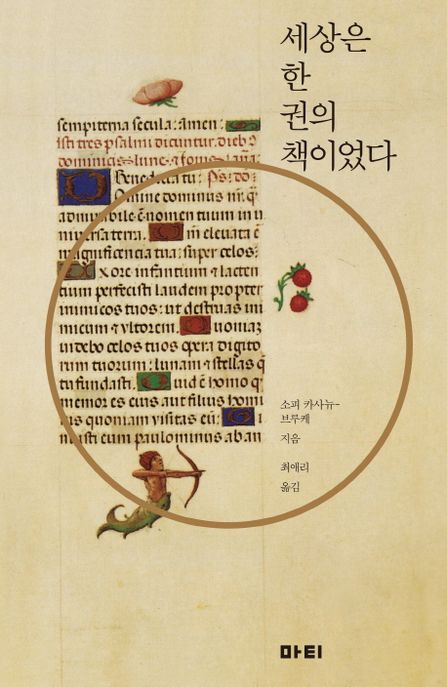 세상은
한
권의
책이었다
sempiterna secula: amen:
isti tres psalmi dicuntur. dieb9
dominicis: lune: &
Benedicta tu: Ps: do:
Omine dominus nr: q̃
admirabile ē nomen tuum in u
niversa terra. m elevata ē
magnificencia tua: super celos:
X ore infantium & lacten
tium perfecisti laudem propter
inimicos tuos: ut destruas ini
micum & ultorem. uoniaz
videbo celos tuos opera digito
rum tuorum: lunam & stellas q̃
tu fundasti. uid ē homo q
memor es eius aut filius homi
is quoniam visitas eū:
nuisti eum paulominus ab an
소피 카사뉴-
브루케
지음
최애리
옮김
마티